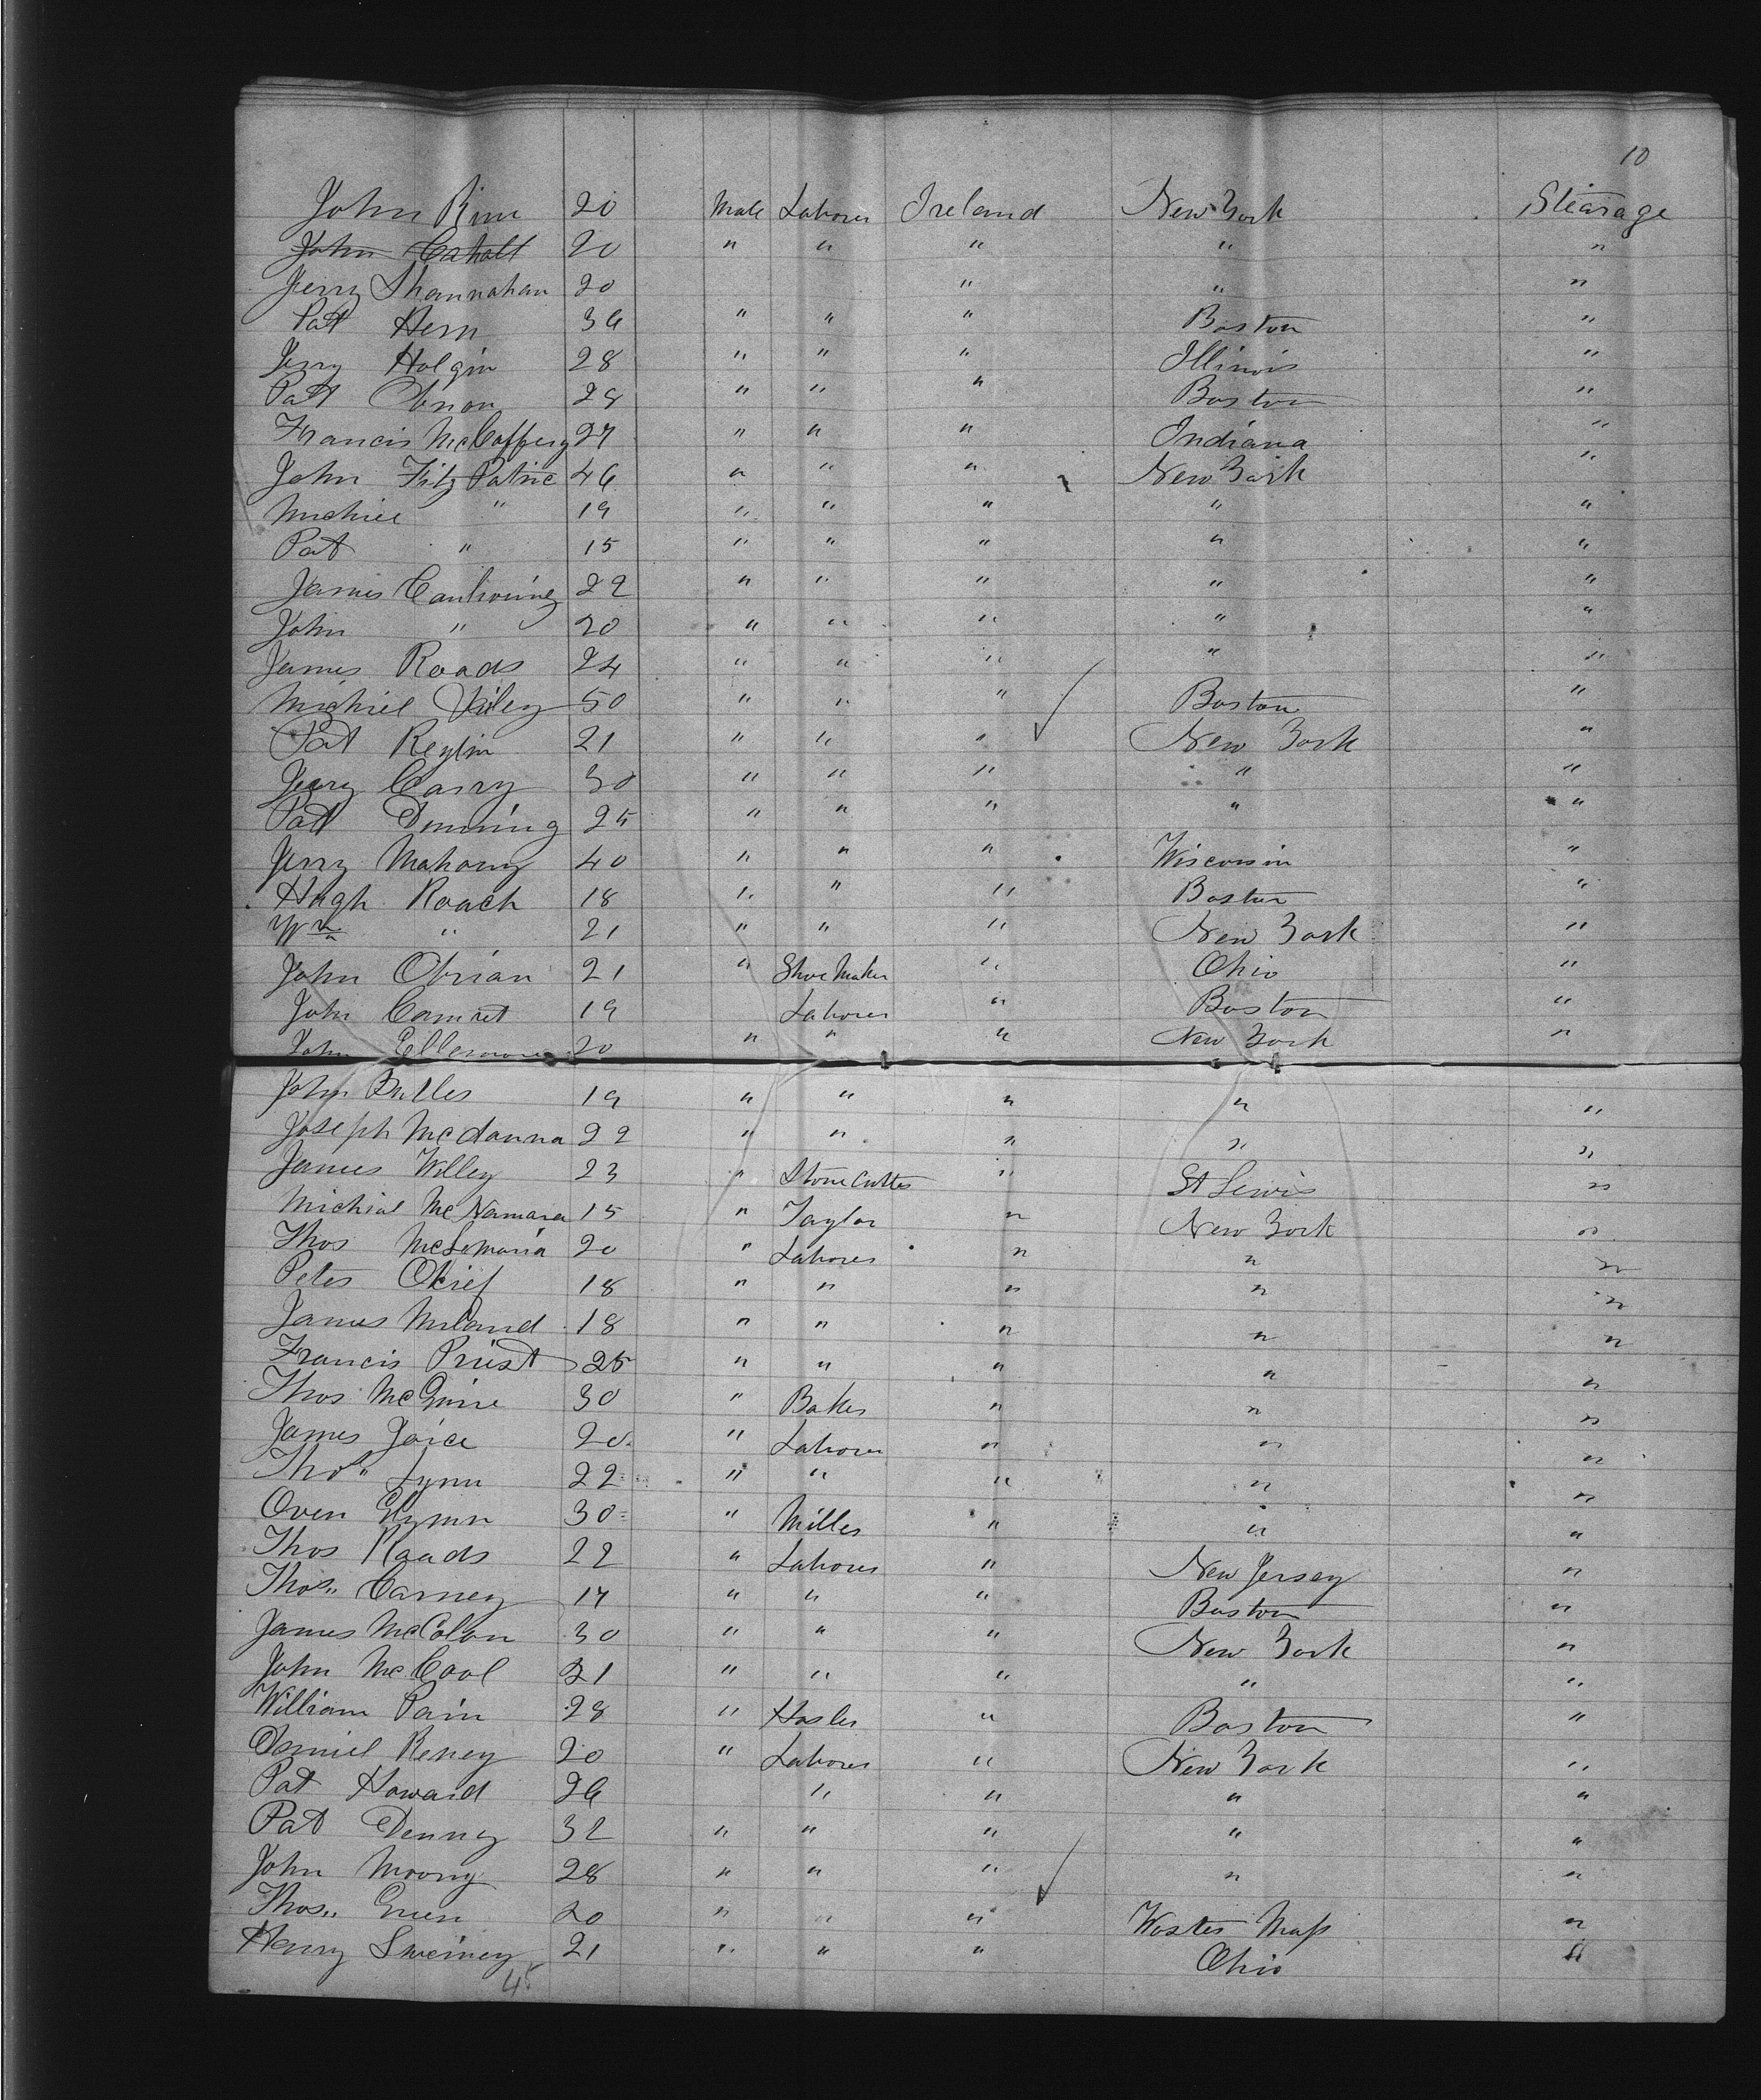 10
John Rinn 20 Male Laborer Ireland New York Stearage
John Cahall 20 " " " " "
Jerry Shannahan 20 " " "
Pat Hern 36 " " " Boston "
Jerry Holgin 28 " " " Illinois "
Pat Obrion 28 " " " Boston "
Francis McCaffery 27 " " " Indiana "
John Fitz Patric 46 " " " New York "
Michiel " 19 " " " " "
Pat " 15 " " " " "
James 22 " " " " "
John " 20 " " " " "
James Roads 24 " " " " "
Michiel 50 " " " Boston "
Pat 21 " " " New York "
Jerry Casry 30 " " " " "
Pat Denning 25 " " " " "
Jerry Mahony 40 " " " Wisconsin "
Hugh Roach 18 " " " Boston "
Wm " 21 " " " New York "
John Obrian 21 " Shoe Maker " Ohio "
John 19 Laborer " Boston "
John 20 " " " New York "
John Butles 19 " " " " "
Joseph 22 " " " " "
James Willey 23 " Stone Cutter " St Lewis "
Michial McNamara 15 " Taylor " New York "
Thos 20 " Laborer " " "
Peter Okief 18 " " " " "
James Mcland 18 " " " " "
Francis Priest 25 " " " " "
Thos McGuire 30 " Baker " " "
James Joice 20 " Laborer " " "
Thos " Lynn 22 " " " " "
Owen Glynn 30 " Miller " " "
Thos Roads 22 " Laborer " New Jersey "
Thos " Carney 17 " " " Boston "
James McColon 30 " " " New York "
John McCool 21 " " " " "
William Pain 28 " Hosler " Boston "
Daniel Reney 20 " Laborer " New York "
Pat Howard 26 " " " "
Pat Denney 32 " " " " "
John Moony 28 " " " " "
Thos " Green 20 " " " Woster Mass "
Henry Sweiney 21 " " " Ohio "
45